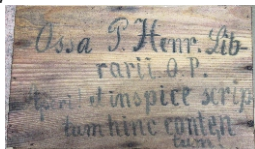 Ossa P. Henr. Lib-
rarii O.P.
inspice scrip
tum hinc conten
tum!